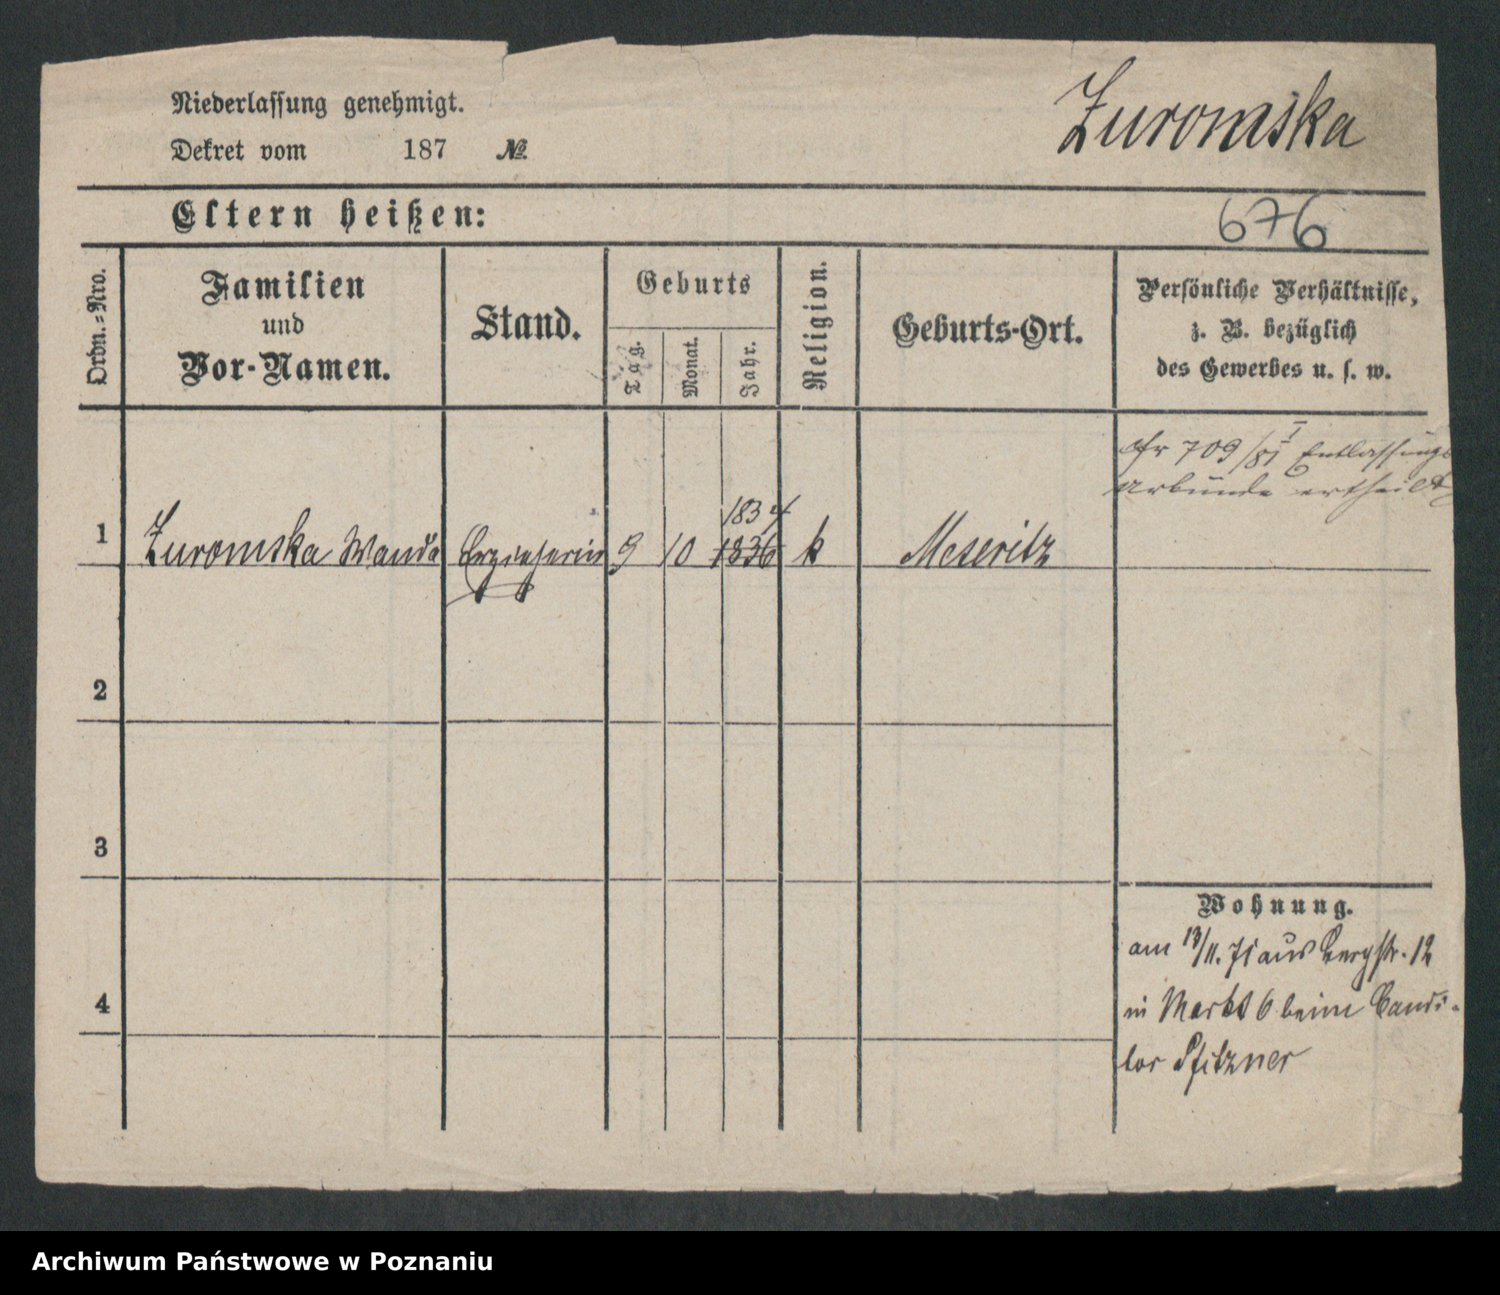 Niederlassung genehmigt.
Dekret vom 187 №
Zuromska
Eltern heißen:
676
Ordn.-Nro.
Familien
und
Vor-Namen.
Stand.
Geburts
Tag.
Monat.
Jahr.
Religion.
Geburts-Ort.
Persönliche Verhältnisse,
z. B. bezüglich
des Gewerbes u. s. w.
cfr 709/81 I Entlassungs
Urkunde ertheilt
1834
1 Zuromska Wanda Erzieherin 9 10 1836 k Meseritz
2
3
4
Wohnung.
am 13/11. 71 aus Bergstr. 12
in Markt 6 beim Condi-
tor Pfitzner
Archiwum Państwowe w Poznaniu